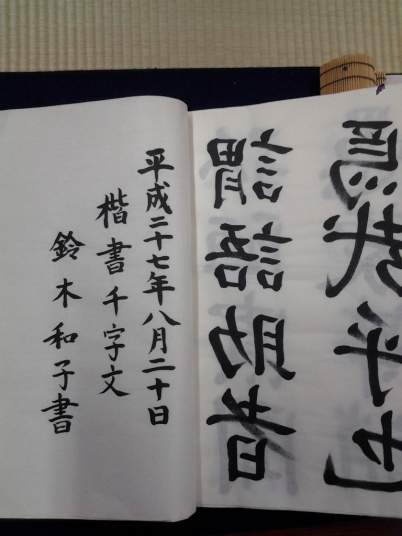 謂語助者
焉哉乎也
平成二十七年八月二十日
楷書千字文
鈴木和子書